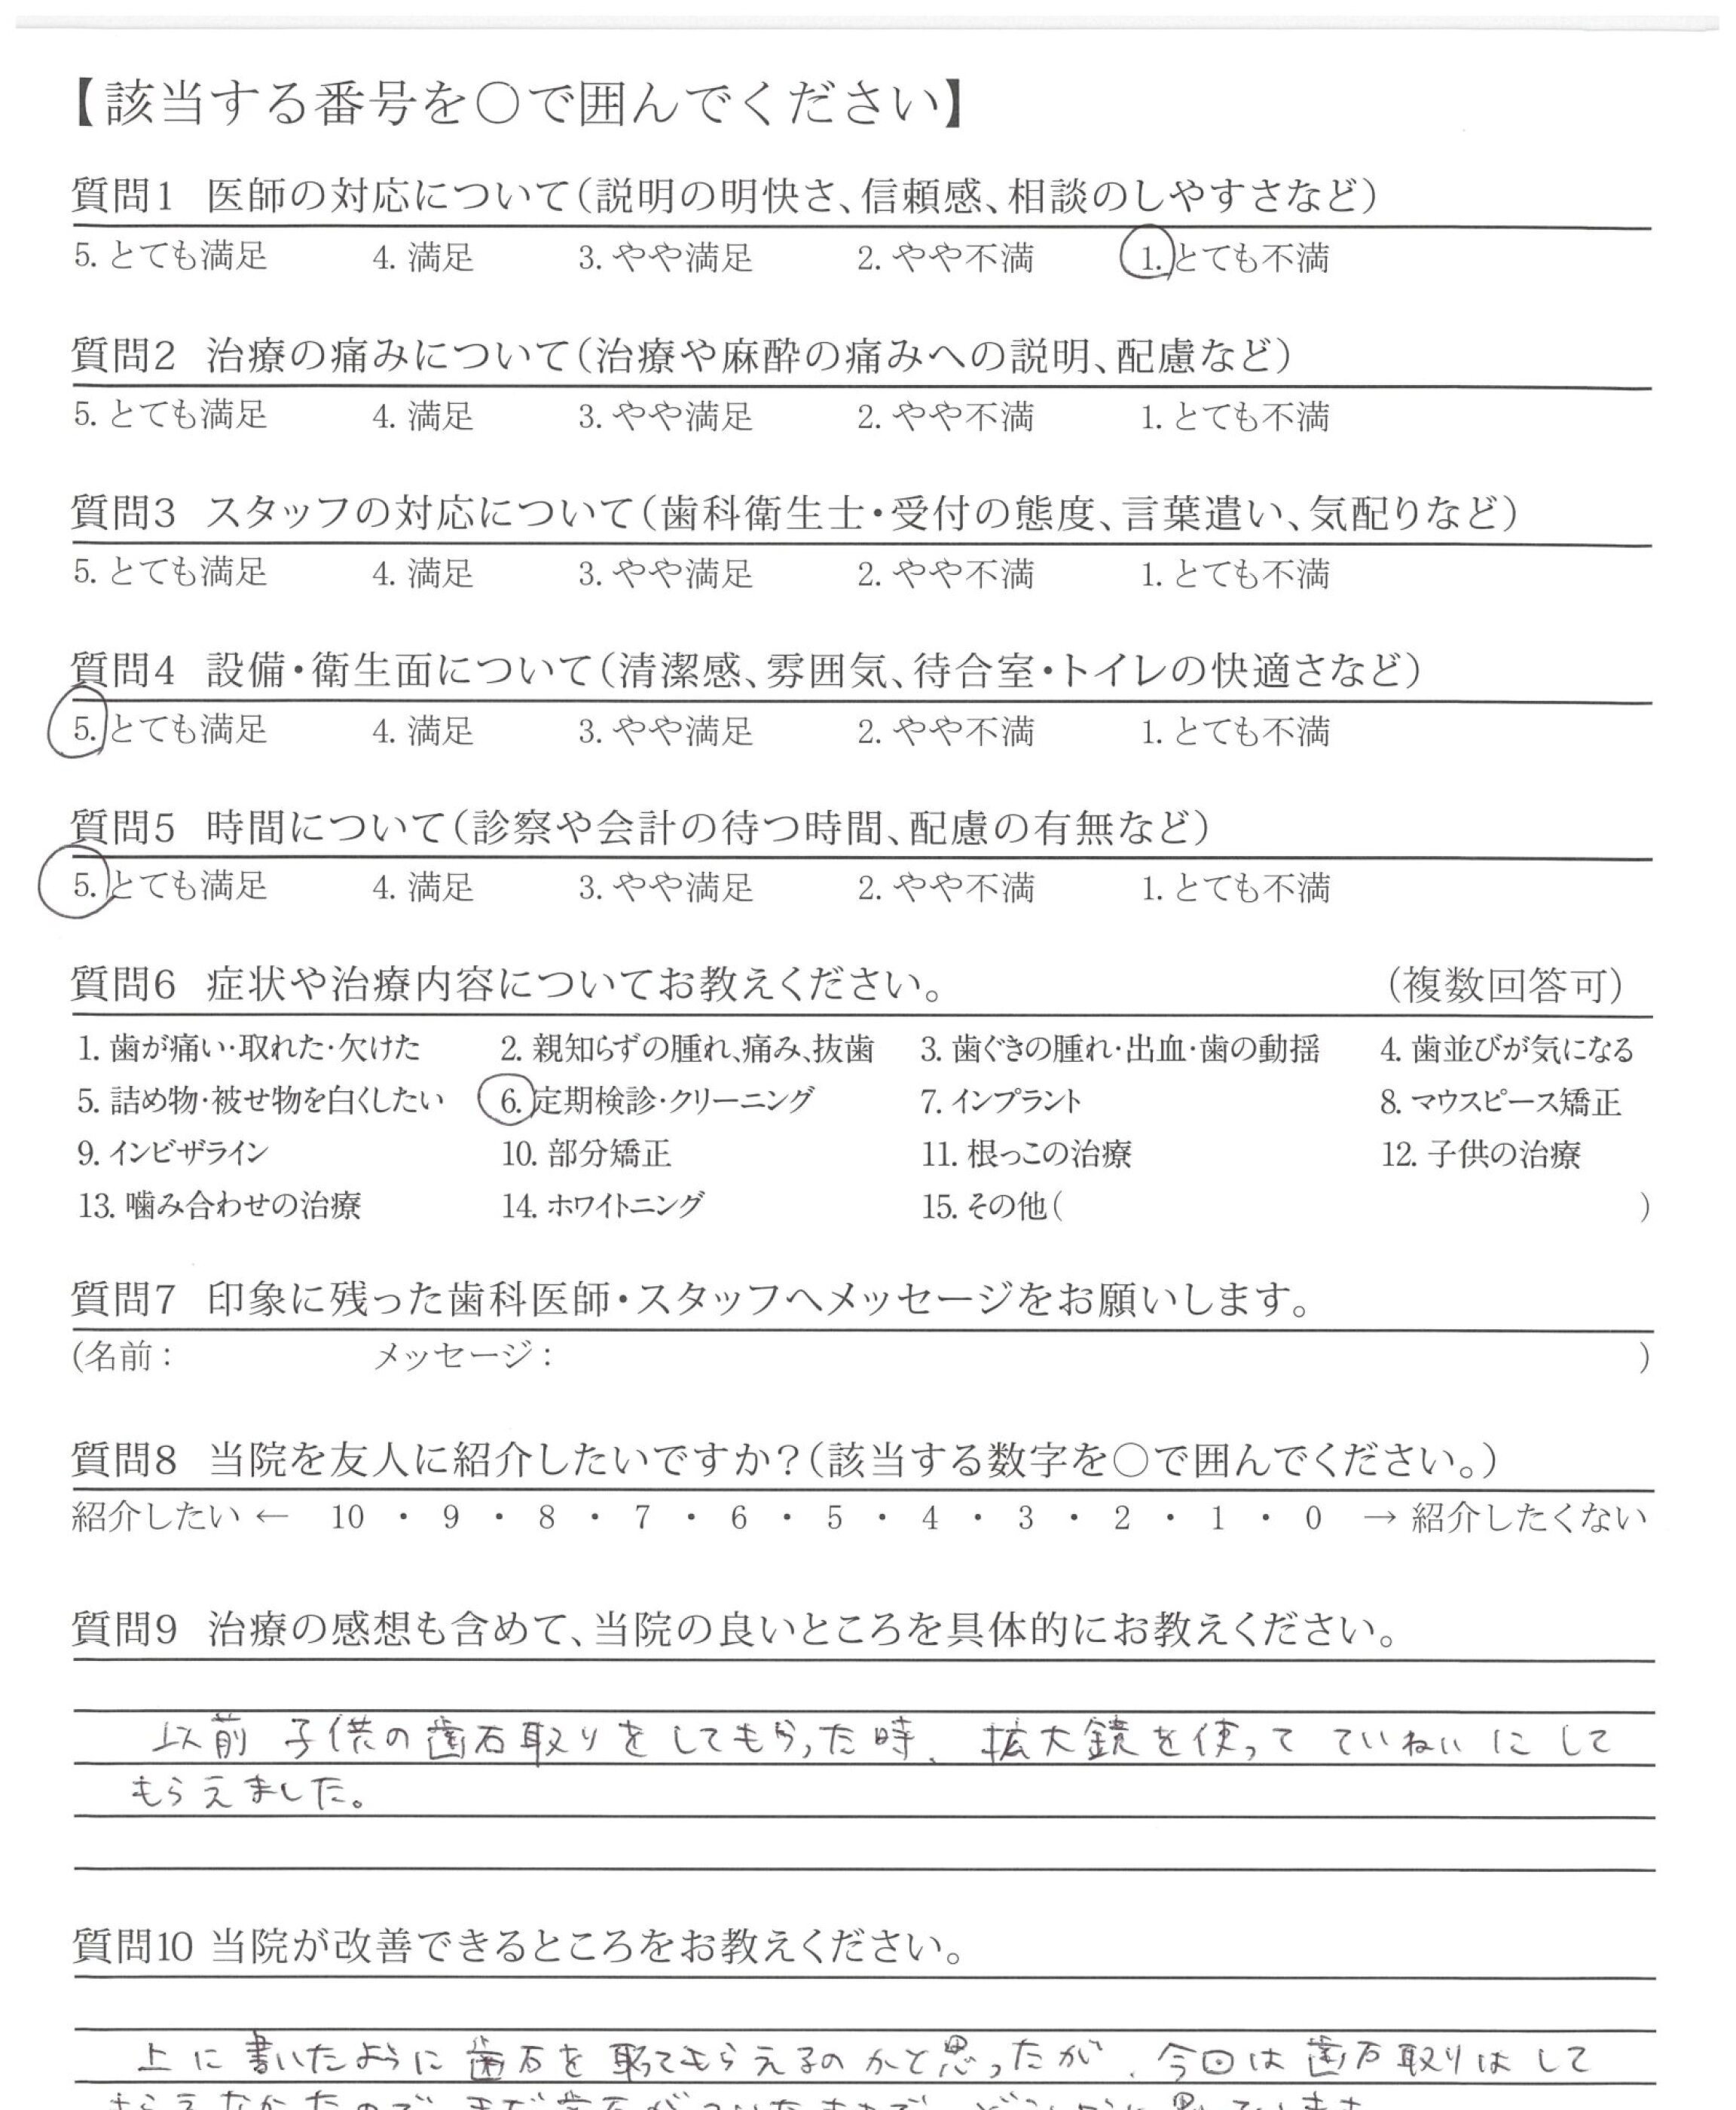 【該当する番号を○で囲んでください】
質問1 医師の対応について(説明の明快さ、信頼感、相談のしやすさなど)
5. とても満足 4. 満足 3. やや満足 2. やや不満 1. とても不満
質問2 治療の痛みについて(治療や麻酔の痛みへの説明、配慮など)
5. とても満足 4. 満足 3. やや満足 2. やや不満 1. とても不満
質問3 スタッフの対応について(歯科衛生士・受付の態度、言葉遣い、気配りなど)
5. とても満足 4. 満足 3. やや満足 2. やや不満 1. とても不満
質問4 設備・衛生面について(清潔感、雰囲気、待合室・トイレの快適さなど)
5. とても満足 4. 満足 3. やや満足 2. やや不満 1. とても不満
質問5 時間について(診察や会計の待つ時間、配慮の有無など)
5. とても満足 4. 満足 3. やや満足 2. やや不満 1. とても不満
質問6 症状や治療内容についてお教えください。 (複数回答可)
1. 歯が痛い·取れた·欠けた 2. 親知らずの腫れ、痛み、抜歯 3. 歯ぐきの腫れ·出血·歯の動揺 4. 歯並びが気になる
5. 詰め物·被せ物を白くしたい 6. 定期検診·クリーニング 7. インプラント 8. マウスピース矯正
9. インビザライン 10. 部分矯正 11. 根っこの治療 12. 子供の治療
13. 噛み合わせの治療 14. ホワイトニング 15. その他( )
質問7 印象に残った歯科医師・スタッフへメッセージをお願いします。
(名前： メッセージ： )
質問8 当院を友人に紹介したいですか？(該当する数字を○で囲んでください。)
紹介したい ← 10 ・ 9 ・ 8 ・ 7 ・ 6 ・ 5 ・ 4 ・ 3 ・ 2 ・ 1 ・ 0 → 紹介したくない
質問9 治療の感想も含めて、当院の良いところを具体的にお教えください。
以前 子供の歯石取りをしてもらった時、拡大鏡を使って ていねいにして
もらえました。
質問10 当院が改善できるところをお教えください。
上に書いたように歯石を取ってもらえるのかと思ったが、今回は歯石取りはして
もらえなかったので、まだ歯石が